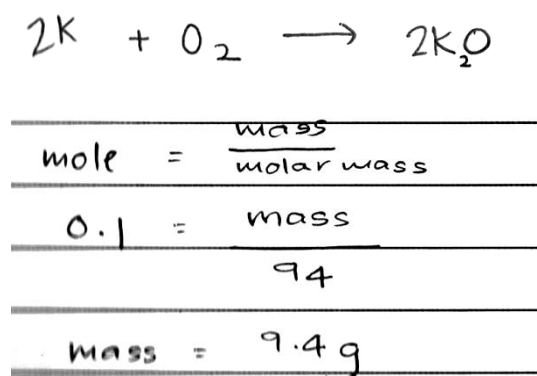 2K + O₂ ⟶ 2K₂O
mole = mass / molar mass
0.1 = mass / 94
mass = 9.4 g